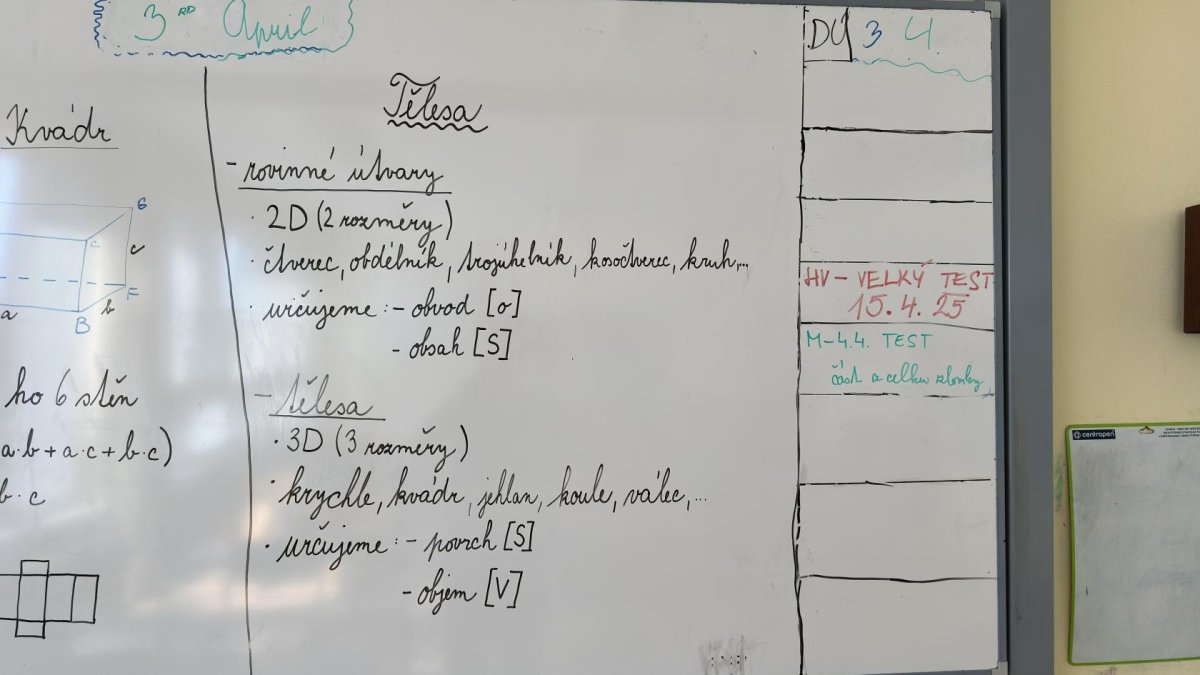 3RD April
Kvádr
G
C
c
F
b
a
B
ho 6 stěn
a·b+a·c+b·c)
b·c
Tělesa
- rovinné útvary
· 2D (2 rozměry)
· čtverec, obdélník, trojúhelník, kosočtverec, kruh,...
· určujeme: - obvod [o]
- obsah [S]
- tělesa
· 3D (3 rozměry)
· krychle, kvádr, jehlan, koule, válec,...
· určujeme: - povrch [S]
- objem [V]
DÚ 3 4
HV - VELKÝ TEST
15.4.25
M-4.4. TEST
část z celku zlomky
centropen